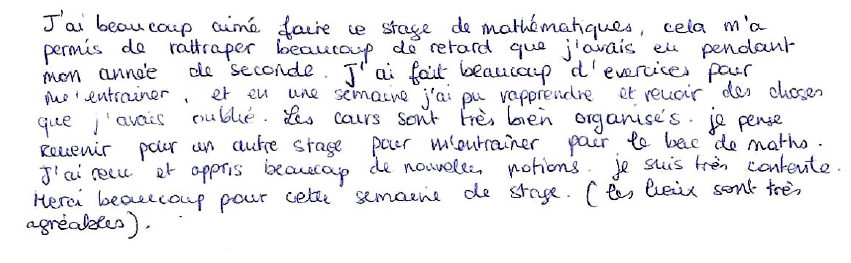 J'ai beaucoup aimé faire ce stage de mathématiques, cela m'a
permis de rattraper beaucoup de retard que j'avais eu pendant
mon année de seconde. J'ai fait beaucoup d'exercices pour
m'entrainer, et en une semaine j'ai pu rapprendre et revoir des choses
que j'avais oublié. Les cours sont très bien organisés. je pense
revenir pour un autre stage pour m'entraîner pour le bac de maths.
J'ai revu et appris beaucoup de nouvelles notions. je suis très contente.
Merci beaucoup pour cette semaine de stage. (les lieux sont très
agréables).